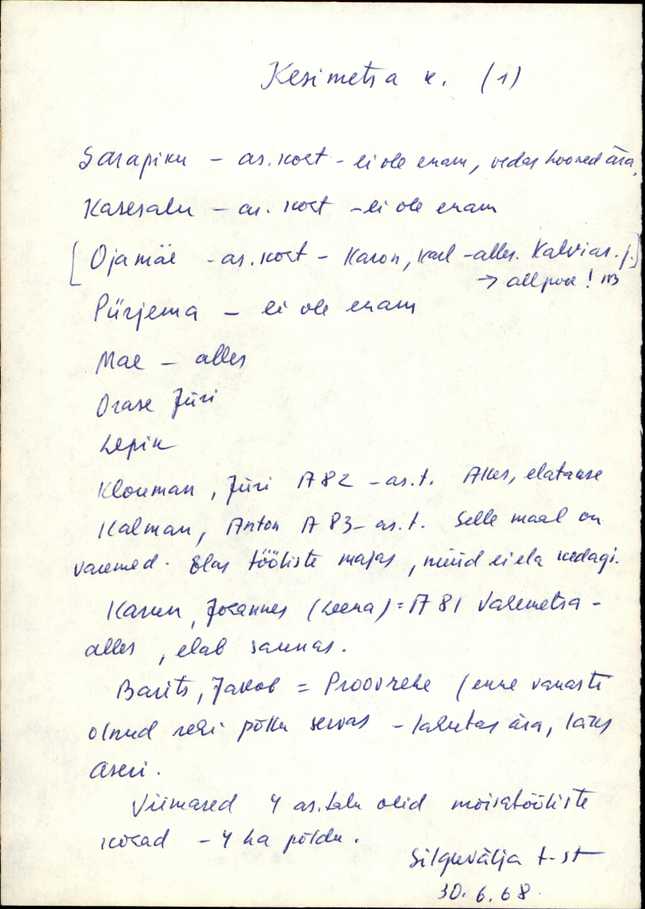 Kesimetsa k. (1)
Sarapiku – as. koht – ei ole enam, vedas hooned ära,
Kasesalu – as. koht – ei ole enam
[Ojamäe – as. koht – Karon, Karl – alles. Kalvi as. j.]
→ allpool! NB
Piirjema – ei ole enam
Mäe – alles
Orase Jüri
Lepik
Klouman, Jüri A 82 – as. t. Akes, elatakse
Kalman, Anton A 83 – as. t. Selle maal on
varemed. Elas tööliste majas, nüüd ei ela kedagi.
Karun, Joannes (Leena) = A 81 Vahemetsa –
alles, elab saunas.
Barits, Jakob = Proovrehe (enne vanasti
olnud rehi põllu servas – lahutas ära, läks
Aseri.
Viimased 4 as. talu olid mõisatööliste
kohad – 4 ha põldu.
Silguvälja t-st
30.6.68.